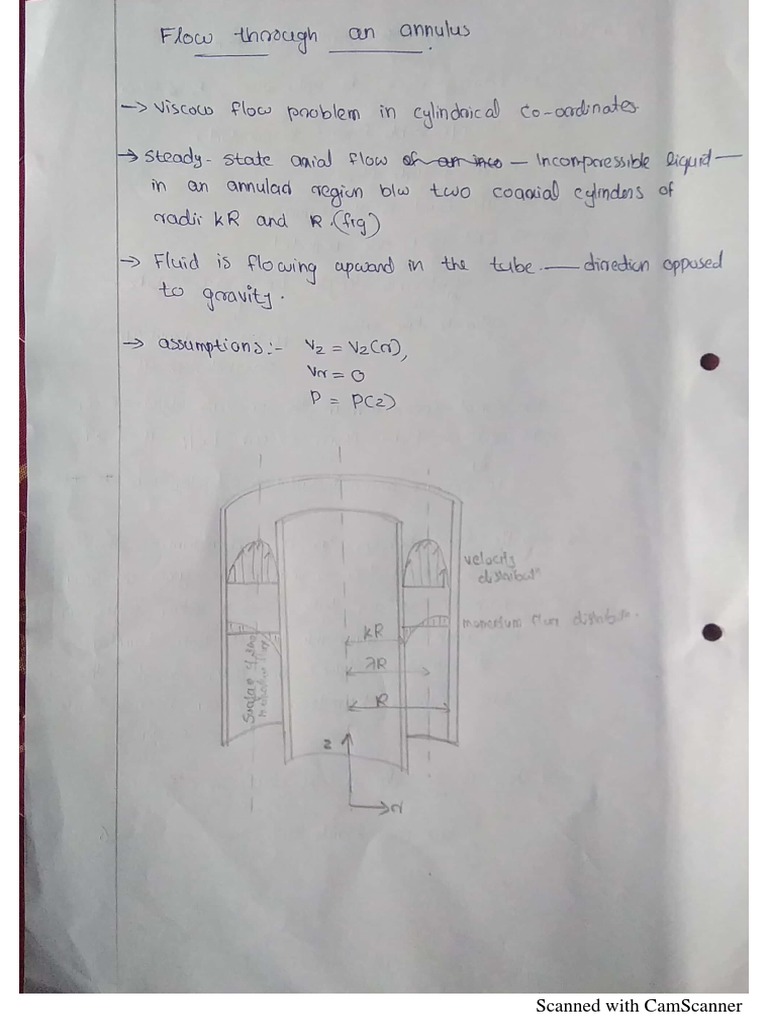 Flow through an annulus
→ Viscous flow problem in cylindrical co-ordinates.
→ Steady-state axial flow of an inco — Incompressible liquid —
in an annular region b/w two coaxial cylinders of
radii kR and R. (fig)
→ Fluid is flowing upward in the tube — direction opposed
to gravity.
→ assumptions:- Vz = Vz(r),
Vr = 0
P = P(z)
velocity
distribut
momentum flux distribut.
kR
λR
R
Surface of zero
momentum flux
z
r
Scanned with CamScanner